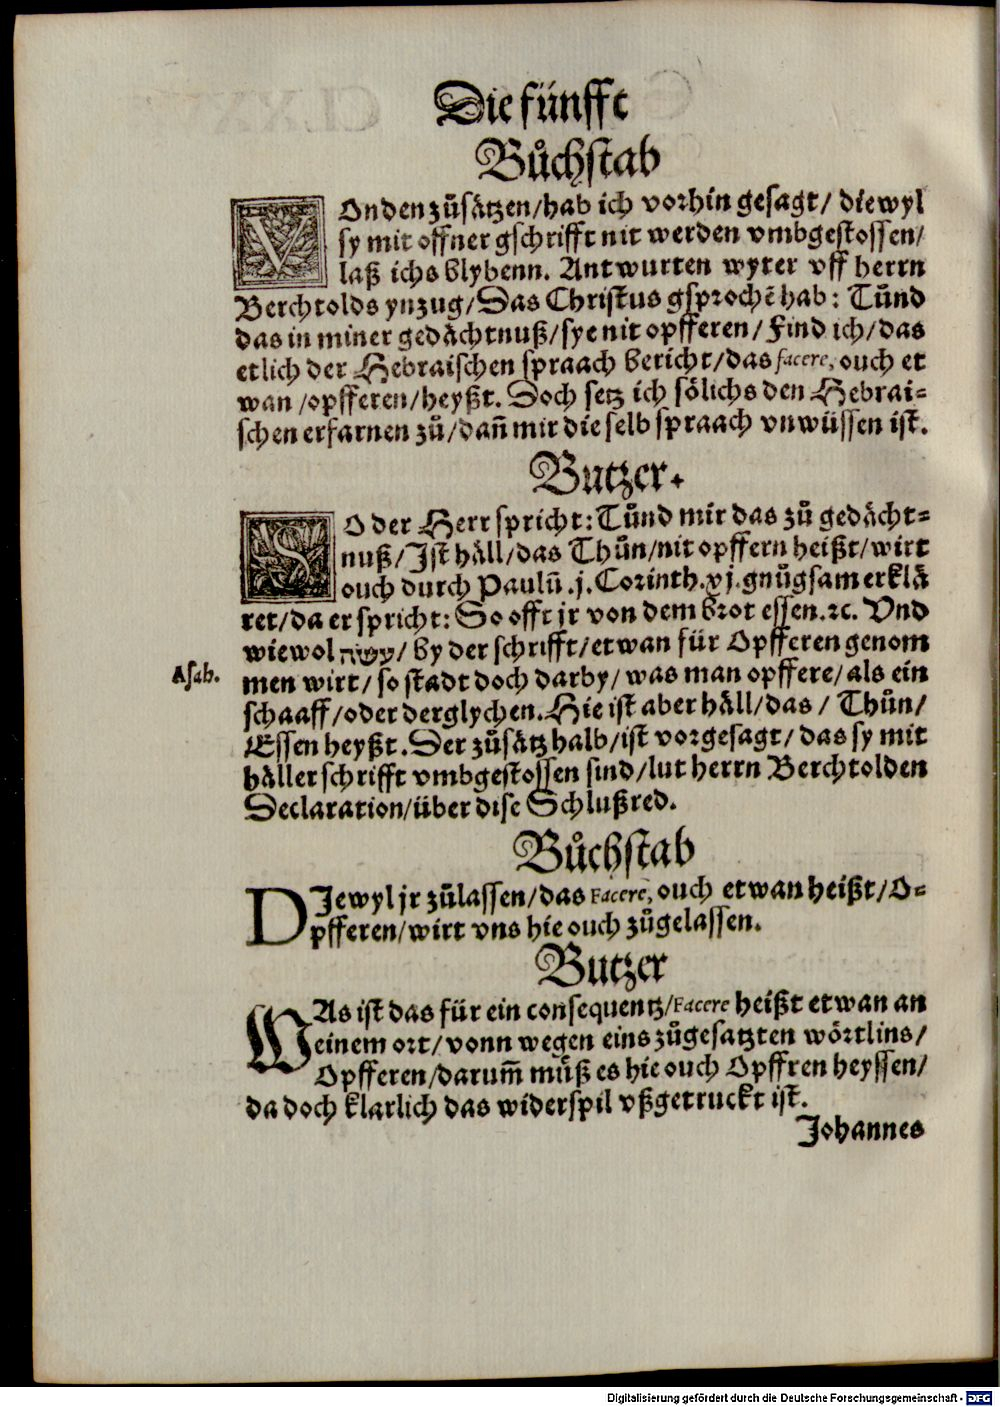 Die fünfft
Bůchstab
VOn den zůsätzen/ hab ich vorhin gesagt/ diewyl
sy mit offner gschrifft nit werden vmbgestossen/
laß ichs blybenn. Antwurten wyter vff herrn
Berchtolds ynzug/ Das Christus gsprochẽ hab: Tůnd
das in miner gedächtnuß/ sye nit opfferen/ Find ich/ das
etlich der Hebraischen spraach bericht/ das facere, ouch et
wan/ opfferen/ heyßt. Doch setz ich sölichs den Hebrai⸗
schen erfarnen zů/ dañ mir die selb spraach vnwüssen ist.
Butzer.
SO der Herr spricht: Tůnd mir das zů gedächt⸗
nuß/ Ist häll/ das Thůn/ nit opffern heißt/ wirt
ouch durch Paulũ .j. Corinth. xj. gnůgsam erklä
ret/ da er spricht: So offt jr von dem brot essen. ꝛc. Vnd
wiewol עשה/ by der schrifft/ etwan für Opfferen genom
Asab.
men wirt/ so stadt doch darby/ was man opffere/ als ein
schaaff/ oder derglychen. Hie ist aber häll/ das/ Thůn/
Essen heyßt. Der zůsätz halb/ ist vorgesagt/ das sy mit
häller schrifft vmbgestossen sind/ lut herrn Berchtolden
Declaration/ über dise Schlußred.
Bůchstab
DIewyl jr zůlassen/ das Facere, ouch etwan heißt/ O⸗
pfferen/ wirt vns hie ouch zůgelassen.
Butzer
WAs ist das für ein consequentz/ Facere heißt etwan an
einem ort/ vonn wegen eins zůgesatzten wörtlins/
Opfferen/ darum̃ můß es hie ouch Opffren heyssen/
da doch klarlich das widerspil vßgetruckt ist.
Johannes
Digitalisierung gefördert durch die Deutsche Forschungsgemeinschaft - DFG